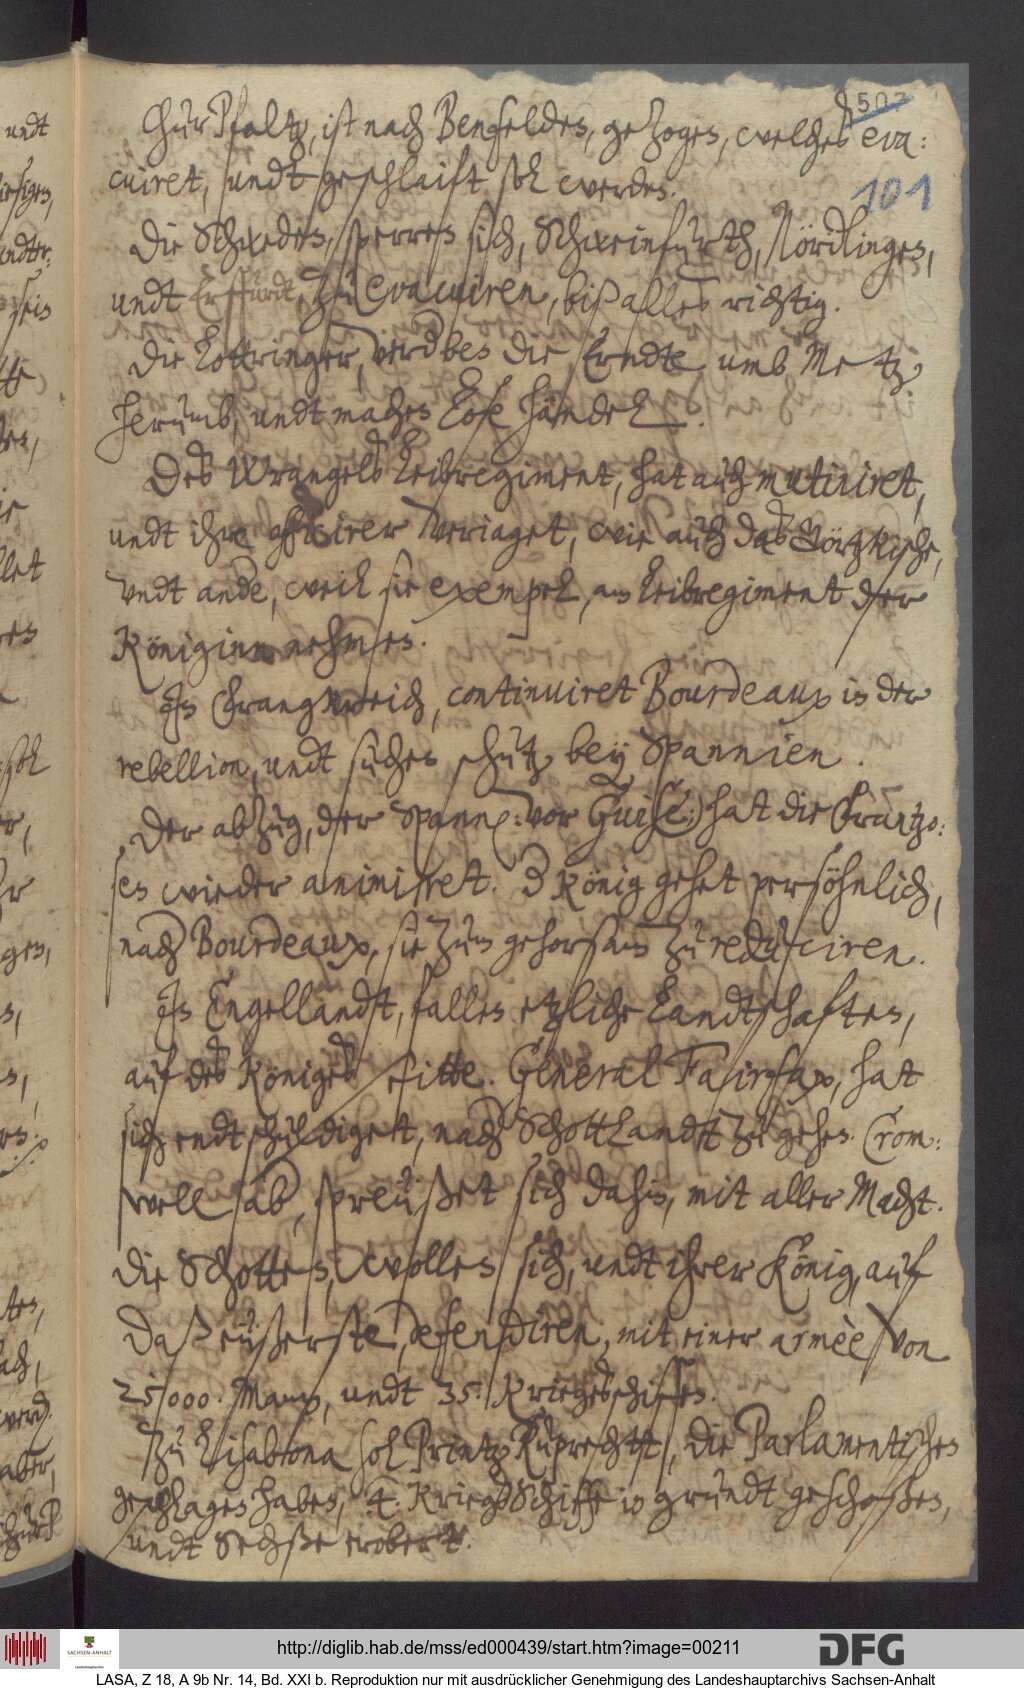 507
101
ChurPfaltz, ist nach Benfelden, gezogen, welches eva:
cuiret, undt geschlaift sol werden.
Die Schweden, sperren sich, Schweinfurth, Nördlingen,
undt Erffurdt, zu evacuiren, biß alles richtig.
Die Lottringer, verderben die Erndte umb Metz
herumb, undt machen böse händel.
Des Wrangels Leibregiment, hat auch mutiniret,
undt ihre officirer veriaget, wie auch das Görtzkische,
undt andre, weil sie exempel, am Leibregiment der
Königinn nehmen.
In Franckreich, continuiret Bourdeaux in der
rebellion, undt suchen schutz bey Spannien.
Der abzug, der Spann: vor Guise hat die Frantzo:
sen wieder animiret. Der König gehet persöhnlich,
nach Bourdeaux, sie zum gehorsam zu reduciren.
In Engellandt, fallen etzliche Landtschaften,
auf des Königes seitte. General Fairfax, hat
sich endtschuldiget, nach Schottlandt zu gehen. Crom:
well aber, spreüßet sich dahin, mit aller Macht.
Die Schotten, wollen sich, undt ihren König, auf
daß eüßerste, defendiren, mit einer armèe von
25000. Mann, undt 35. Kriegesschiffen.
Zu Lisabona sol Printz Ruprecht, die Parlamentischen
geschlagen haben, 4. KriegsSchiffe in grundt geschoßen,
undt Sechße erobert.
http://diglib.hab.de/mss/ed000439/start.htm?image=00211
DFG
SACHSEN-ANHALT
LASA, Z 18, A 9b Nr. 14, Bd. XXI b. Reproduktion nur mit ausdrücklicher Genehmigung des Landeshauptarchivs Sachsen-Anhalt